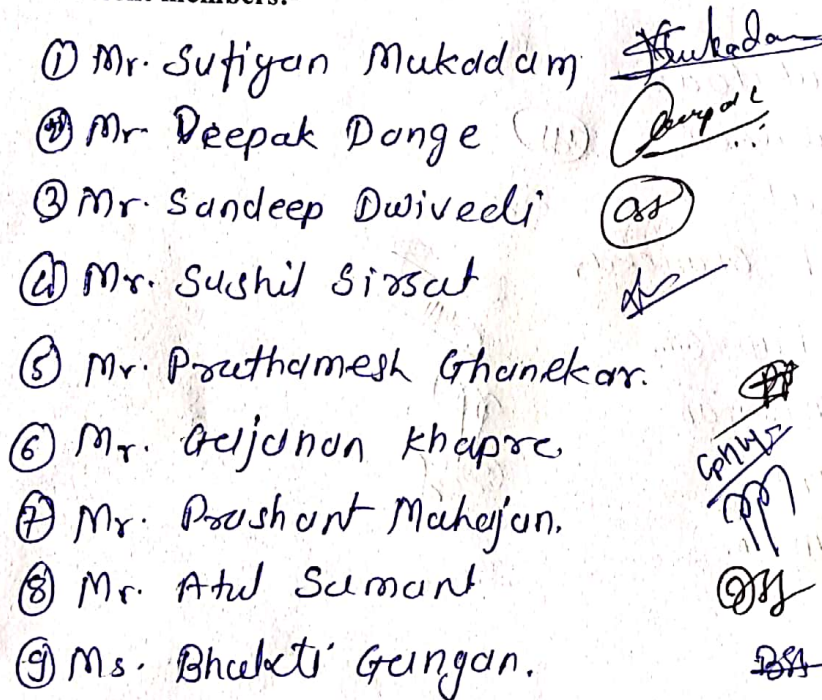 members:
① Mr. Sufiyan Mukadam Mukadam
② Mr. Deepak Dange
③ Mr. Sandeep Dwivedi
④ Mr. Sushil Sirsat
⑤ Mr. Prathamesh Ghanekar.
⑥ Mr. Gajanan Khapre.
⑦ Mr. Prashant Mahajan.
⑧ Mr. Atul Samant
⑨ Ms. Bhakti Gangan.